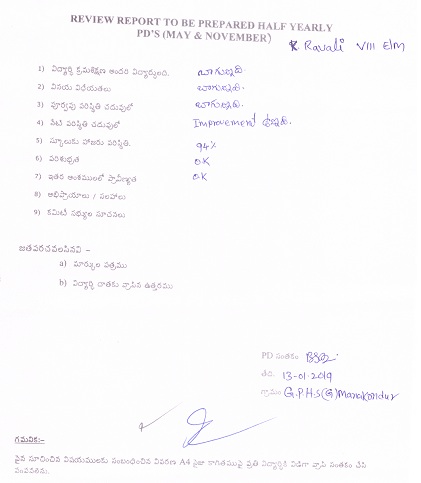 REVIEW REPORT TO BE PREPARED HALF YEARLY
PD'S (MAY & NOVEMBER)
K. Ravali VIII E/M
1) విద్యార్థి క్రమశిక్షణ అందరి విద్యార్థులది. బాగున్నది
2) వినయ విధేయతలు బాగున్నది.
3) పూర్వపు పరిస్థితి చదువులో బాగున్నది.
4) నేటి పరిస్థితి చదువులో Improvement ఉన్నది.
5) స్కూలుకు హాజరు పరిస్థితి. 94%
6) పరిశుభ్రత OK
7) ఇతర అంశములలో ప్రావీణ్యత OK
8) అభిప్రాయాలు / సలహాలు
9) కమిటీ సభ్యుల సూచనలు
జతపరచవలసినవి –
a) మార్కుల పత్రము
b) విద్యార్థి దాతకు వ్రాసిన ఉత్తరము
PD సంతకం
తేది. 13-01-2019
గ్రామం G.P.H.S(G) Manakondur
గమనిక:-
పైన సూచించిన విషయములకు సంబంధించిన వివరణ A4 సైజు కాగితముపై ప్రతి విద్యార్థికి విడిగా వ్రాసి సంతకం చేసి
పంపవలెను.